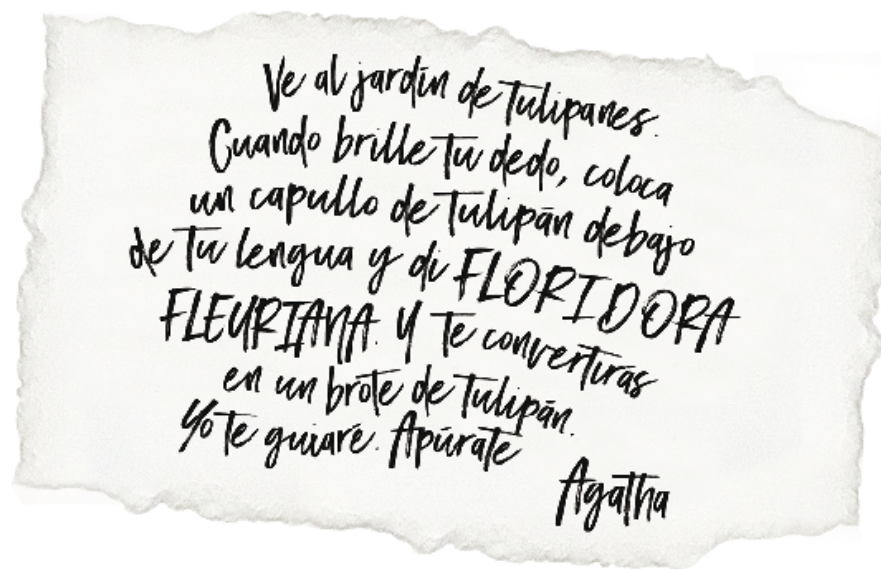 Ve al jardín de tulipanes.
Cuando brille tu dedo, coloca
un capullo de tulipán debajo
de tu lengua y di FLORIDORA
FLEURIANA. Y te convertirás
en un brote de tulipán.
Yo te guiaré. Apúrate
Agatha